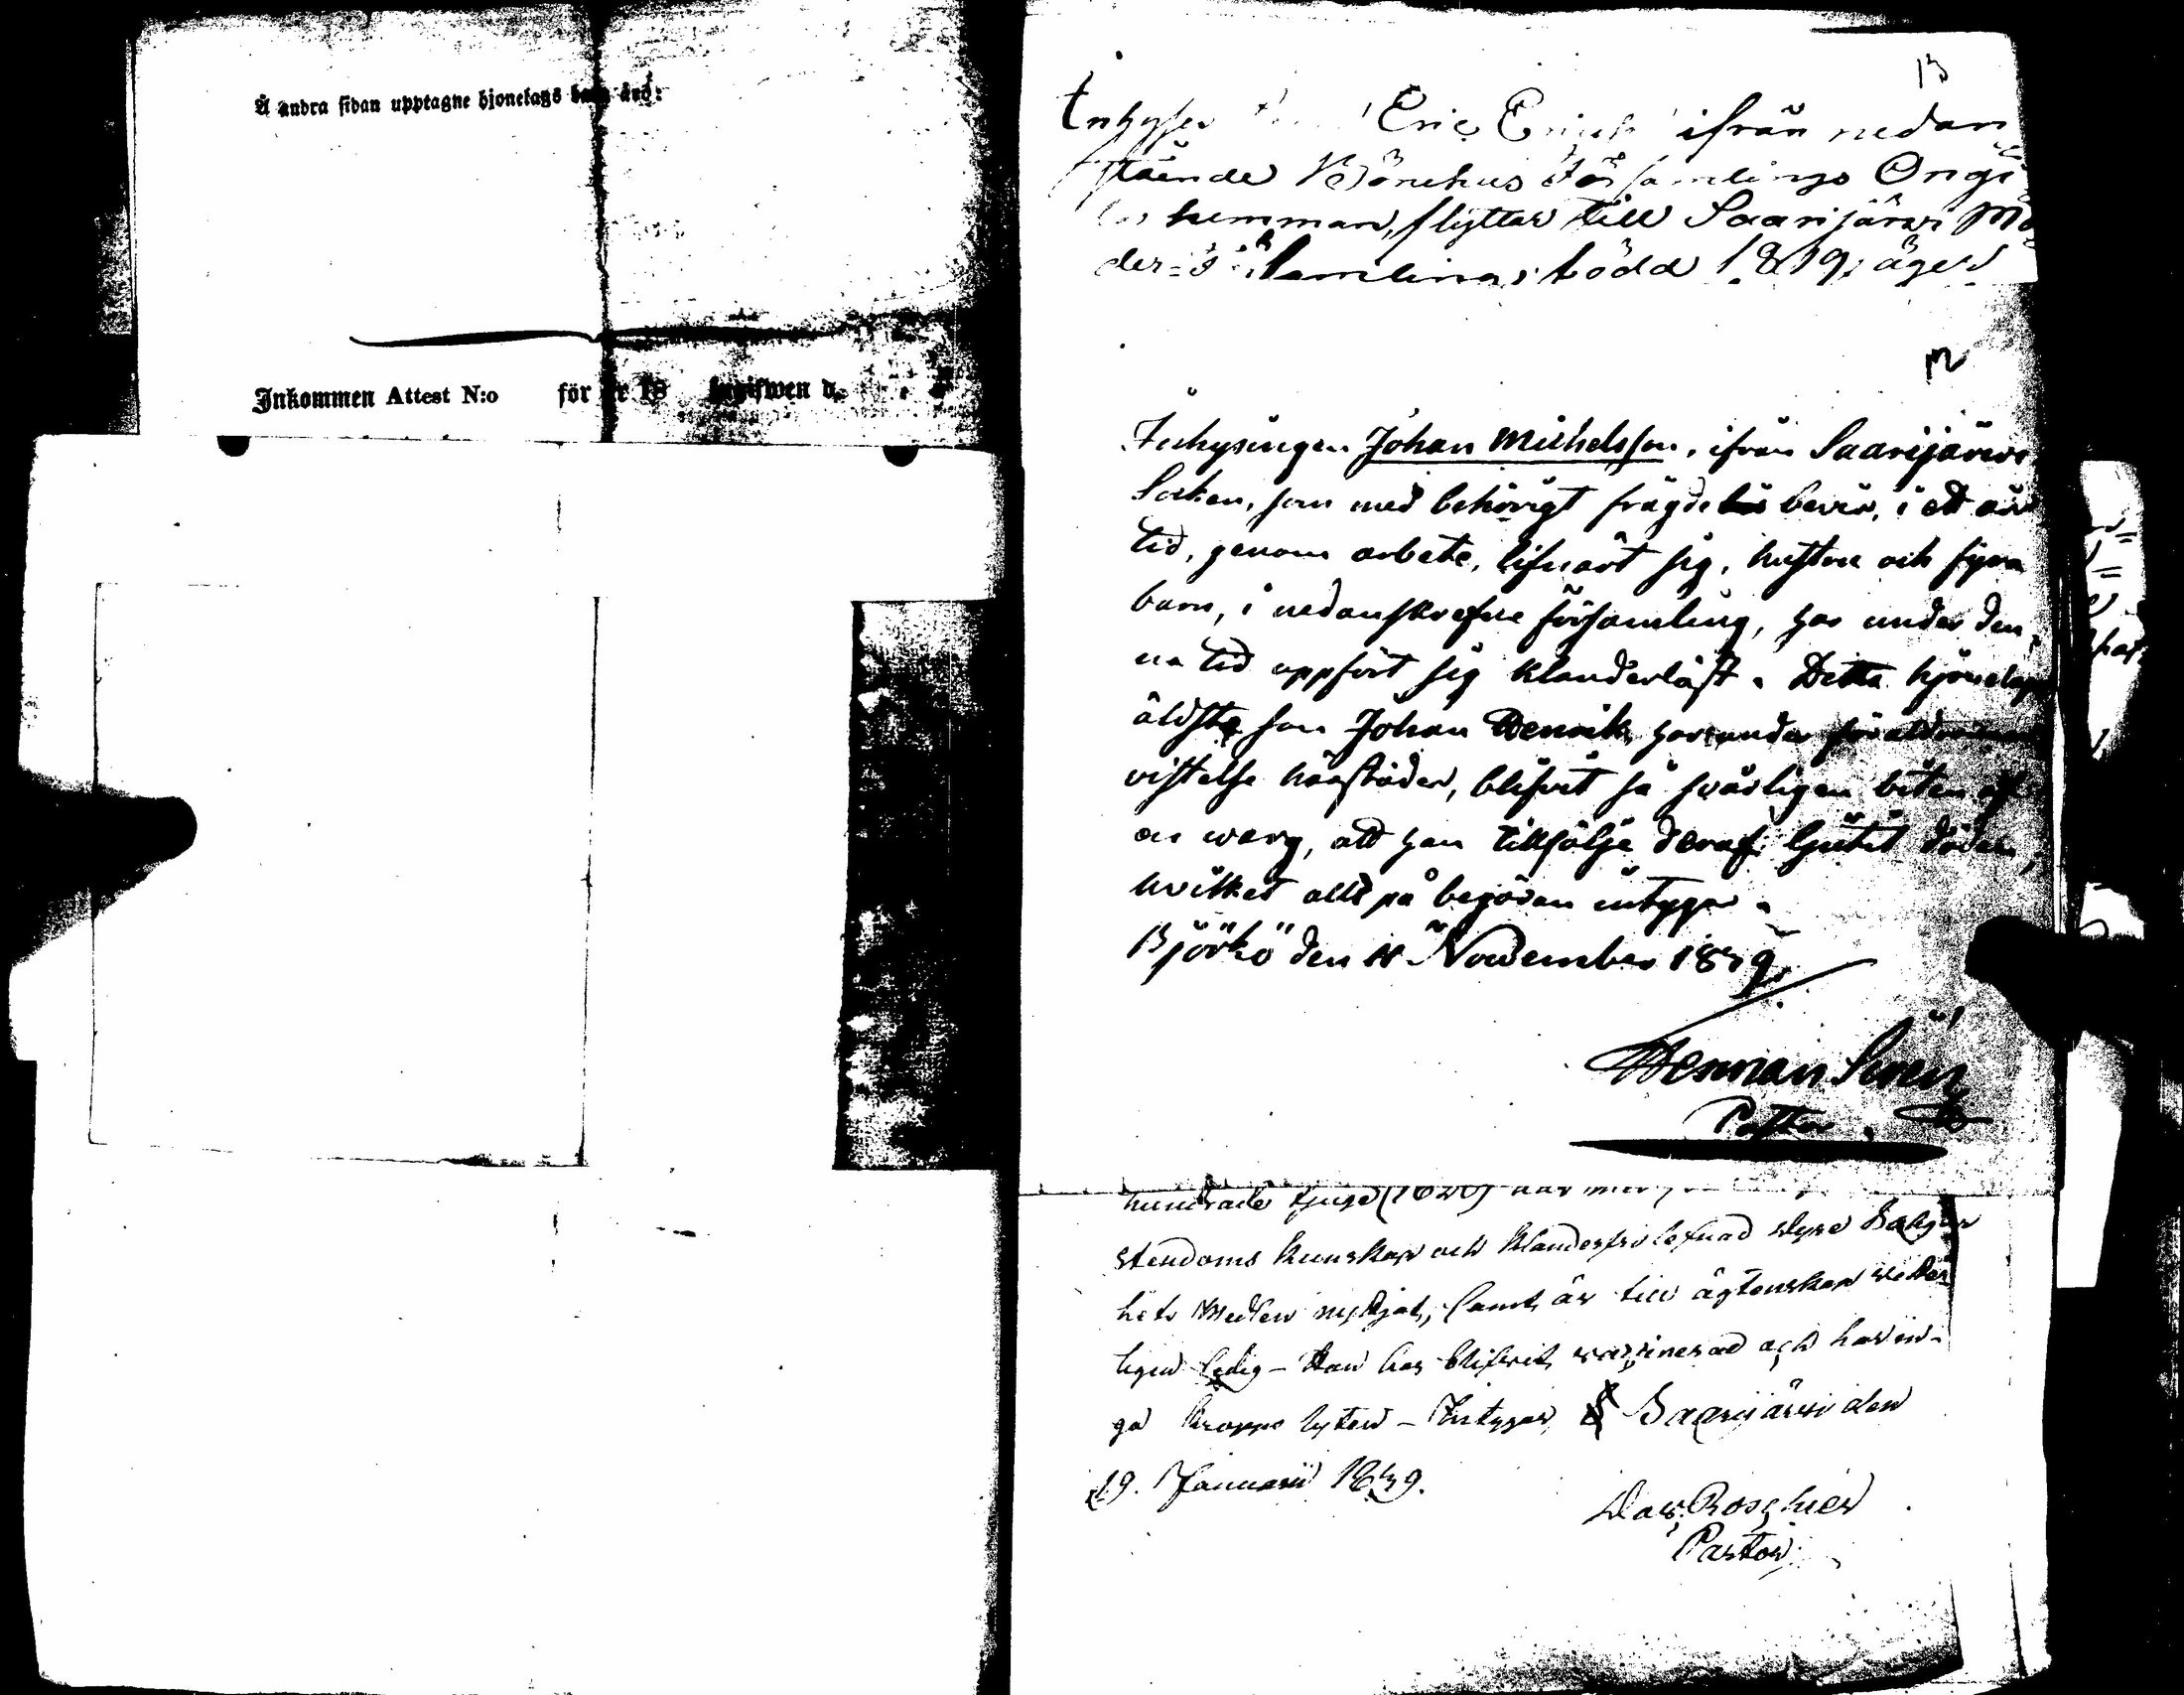 Å andra sidan upptagne hjonelags barn äro:
Inkommen Attest N:o för år 18 ingifwen d.
13
Eric ifrån nedan
stående Bönehus Församlings
hemman, flyttar till Saarijärvi Mo
der= samling; född 1819; äger
12
Inhysingen Johan Michelsson, ifrån Saarijärvi
Socken, som med behörigt frägde bevis, i ett års
tid, genom arbete, lifnärt sig, hustru och fyra
barn, i nedanskrefne församling, har under den,
na tid uppfört sig klanderlöst. Detta hjonelags
äldste son Johan Henrik, har under föräldrarnas
vistelse härstädes, blifvit så svårligen biten af
en warg, att han tillfölje deraf ljutit döden,
hvilket allt på begäran intygar.
Björkö den 11 November 1839.
Herman
Pastor.
hundrade tjugu (1820) har
stendoms kunskap och klanderfri lefnad Salig
hets Medlen nyttjat, samt är till ägtenskap veter
ligen ledig - Han har blifvit vaccinerad och har in-
ga kropps lyten - Intygar, Saarijärvi den
19. Januarii 1839.
Dav. Roschier
Pastor.